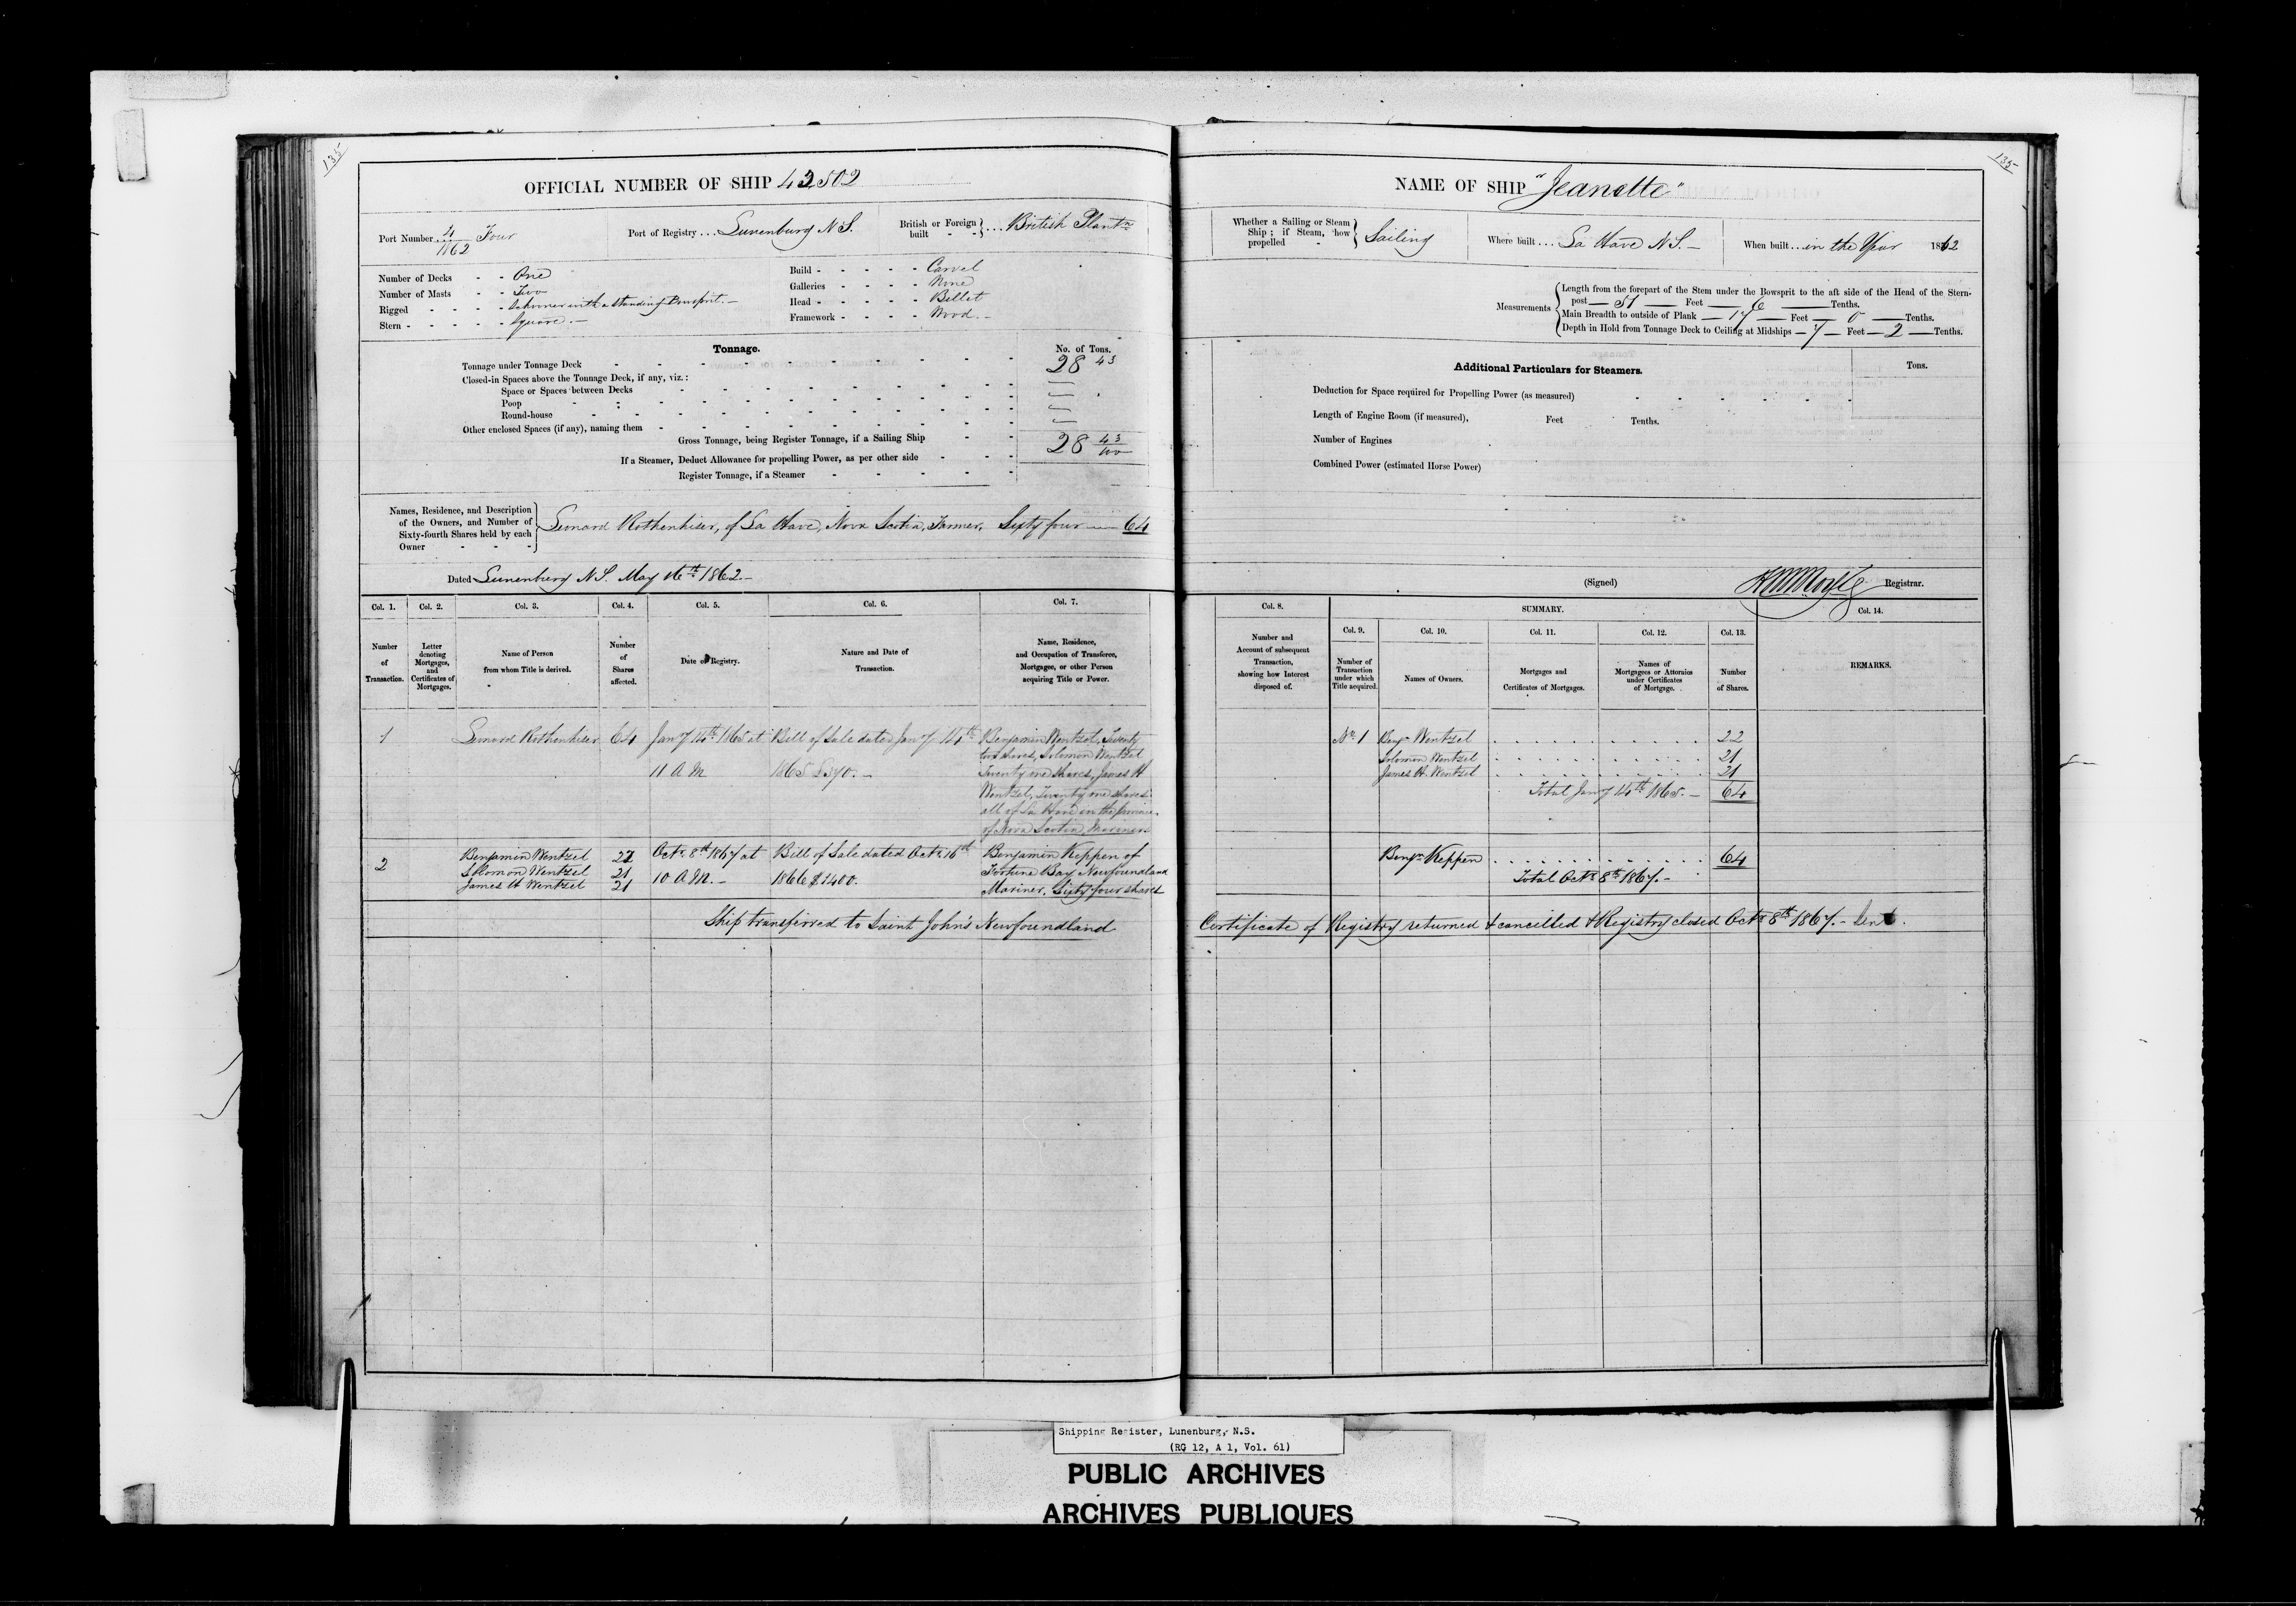 135
OFFICIAL NUMBER OF SHIP 42502
Port Number 4/1862 Four
Port of Registry ... Lunenburg N.S.
British or Foreign built - - } ... British Plantn
Number of Decks - - One
Number of Masts - - Two
Rigged - - - - Schooner with a standing Bowsprit. —
Stern - - - - - Square. —
Build - - - - - Carvel
Galleries - - - - None
Head - - - - - Billet
Framework - - - - Wood. -
Tonnage.
No. of Tons.
Tonnage under Tonnage Deck 28 43
Closed-in Spaces above the Tonnage Deck, if any, viz.:
Space or Spaces between Decks
Poop
Round-house
Other enclosed Spaces (if any), naming them
Gross Tonnage, being Register Tonnage, if a Sailing Ship 28 43/100
If a Steamer, Deduct Allowance for propelling Power, as per other side
Register Tonnage, if a Steamer
Names, Residence, and Description
of the Owners, and Number of
Sixty-fourth Shares held by each
Owner
Lenard Rothenhiser, of La Have, Nova Scotia, Farmer, Sixty four — 64
Dated Lunenburg N.S. May 16th 1862. —
Col. 1. Col. 2. Col. 3. Col. 4. Col. 5. Col. 6. Col. 7.
Number of Transaction.
Letter denoting Mortgages, and Certificates of Mortgages.
Name of Person from whom Title is derived.
Number of Shares affected.
Date of Registry.
Nature and Date of Transaction.
Name, Residence, and Occupation of Transferee, Mortgagee, or other Person acquiring Title or Power.
1 Lenard Rothenhiser 64 Jany 14th 1865 at Bill of Sale dated Jany 14th Benjamin Wentzel, Twenty
two shares, Solomon Wentzel
11 A M 1865 £370. — Twenty one shares, James H
Wentzel, Twenty one shares
all of La Have in the Province
of Nova Scotia, Mariners
2 Benjamin Wentzel 22 Octr. 8th 1867 at Bill of Sale dated Octr. 16th Benjamin Keppen of
Solomon Wentzel 21 Fortune Bay Newfoundland
James H Wentzel 21 10 A.M. - 1866 $1400. Mariner, Sixty four shares
Ship transferred to Saint John's Newfoundland
135
NAME OF SHIP "Jeanette"
Whether a Sailing or Steam Ship; if Steam, how propelled } Sailing
Where built ... La Have N.S. -
When built ... in the Year 1862
Measurements
Length from the forepart of the Stem under the Bowsprit to the aft side of the Head of the Stern-
post — 51 — Feet — 6 — Tenths.
Main Breadth to outside of Plank — 17 — Feet — 0 — Tenths.
Depth in Hold from Tonnage Deck to Ceiling at Midships — 7 — Feet — 2 — Tenths.
Additional Particulars for Steamers.
Tons.
Deduction for Space required for Propelling Power (as measured)
Length of Engine Room (if measured), Feet Tenths.
Number of Engines
Combined Power (estimated Horse Power)
(Signed) Registrar.
Col. 8.
Number and Account of subsequent Transaction, showing how Interest disposed of.
SUMMARY.
Col. 9. Col. 10. Col. 11. Col. 12. Col. 13. Col. 14.
Number of Transaction under which Title acquired.
Names of Owners.
Mortgages and Certificates of Mortgages.
Names of Mortgagees or Attornies under Certificates of Mortgage.
Number of Shares.
REMARKS.
No. 1 Benjn Wentzel 22
Solomon Wentzel 21
James H. Wentzel 21
Total Jany 14th 1865. — 64
Benjn Keppen 64
Total Octr. 8th 1867. -
Certificate of Registry returned & cancelled & Registry closed Octr. 8th 1867. -
Shipping Register, Lunenburg, N.S.
(RG 12, A 1, Vol. 61)
PUBLIC ARCHIVES
ARCHIVES PUBLIQUES